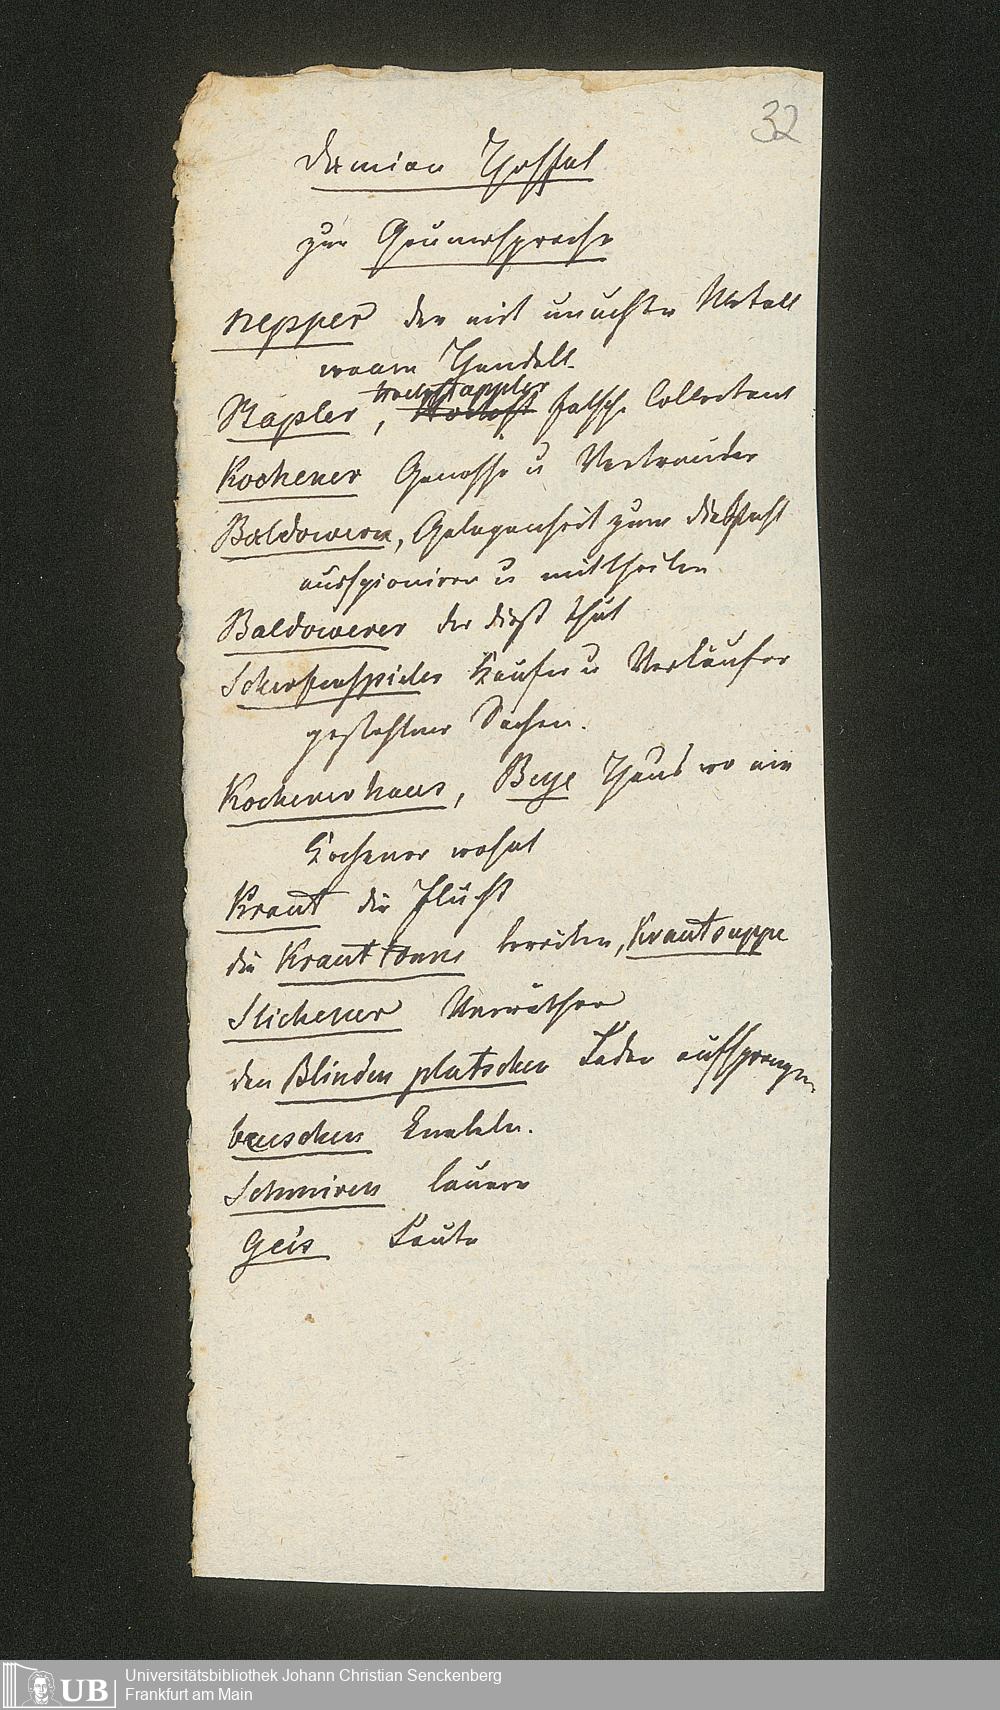 32
Damian Hessel
zur Gaunersprache
Nepper der mit unächten Metall
waaren Handelt.
Hochstappler
Stapler, falsche Collectant
Kochener Genosse u Vertrauter
Baldowern, Gelegenheit zum Diebstahl
ausspioniren u mittheilen
Baldowerer der dieß thut
Scherfenspieler Käufer u Verkäufer
gestohlner Sachen.
Kochenerhaus, Beye Haus wo ein
Kochener wohnt
Kraut die Flucht
die Krauttonne bereiten, Krautsuppe
Slichener Verräther
den Blinden platschen Laden aufsprengen
beuschen Knebeln.
Schmiren lauern
Geis Leute
Universitätsbibliothek Johann Christian Senckenberg
UB Frankfurt am Main